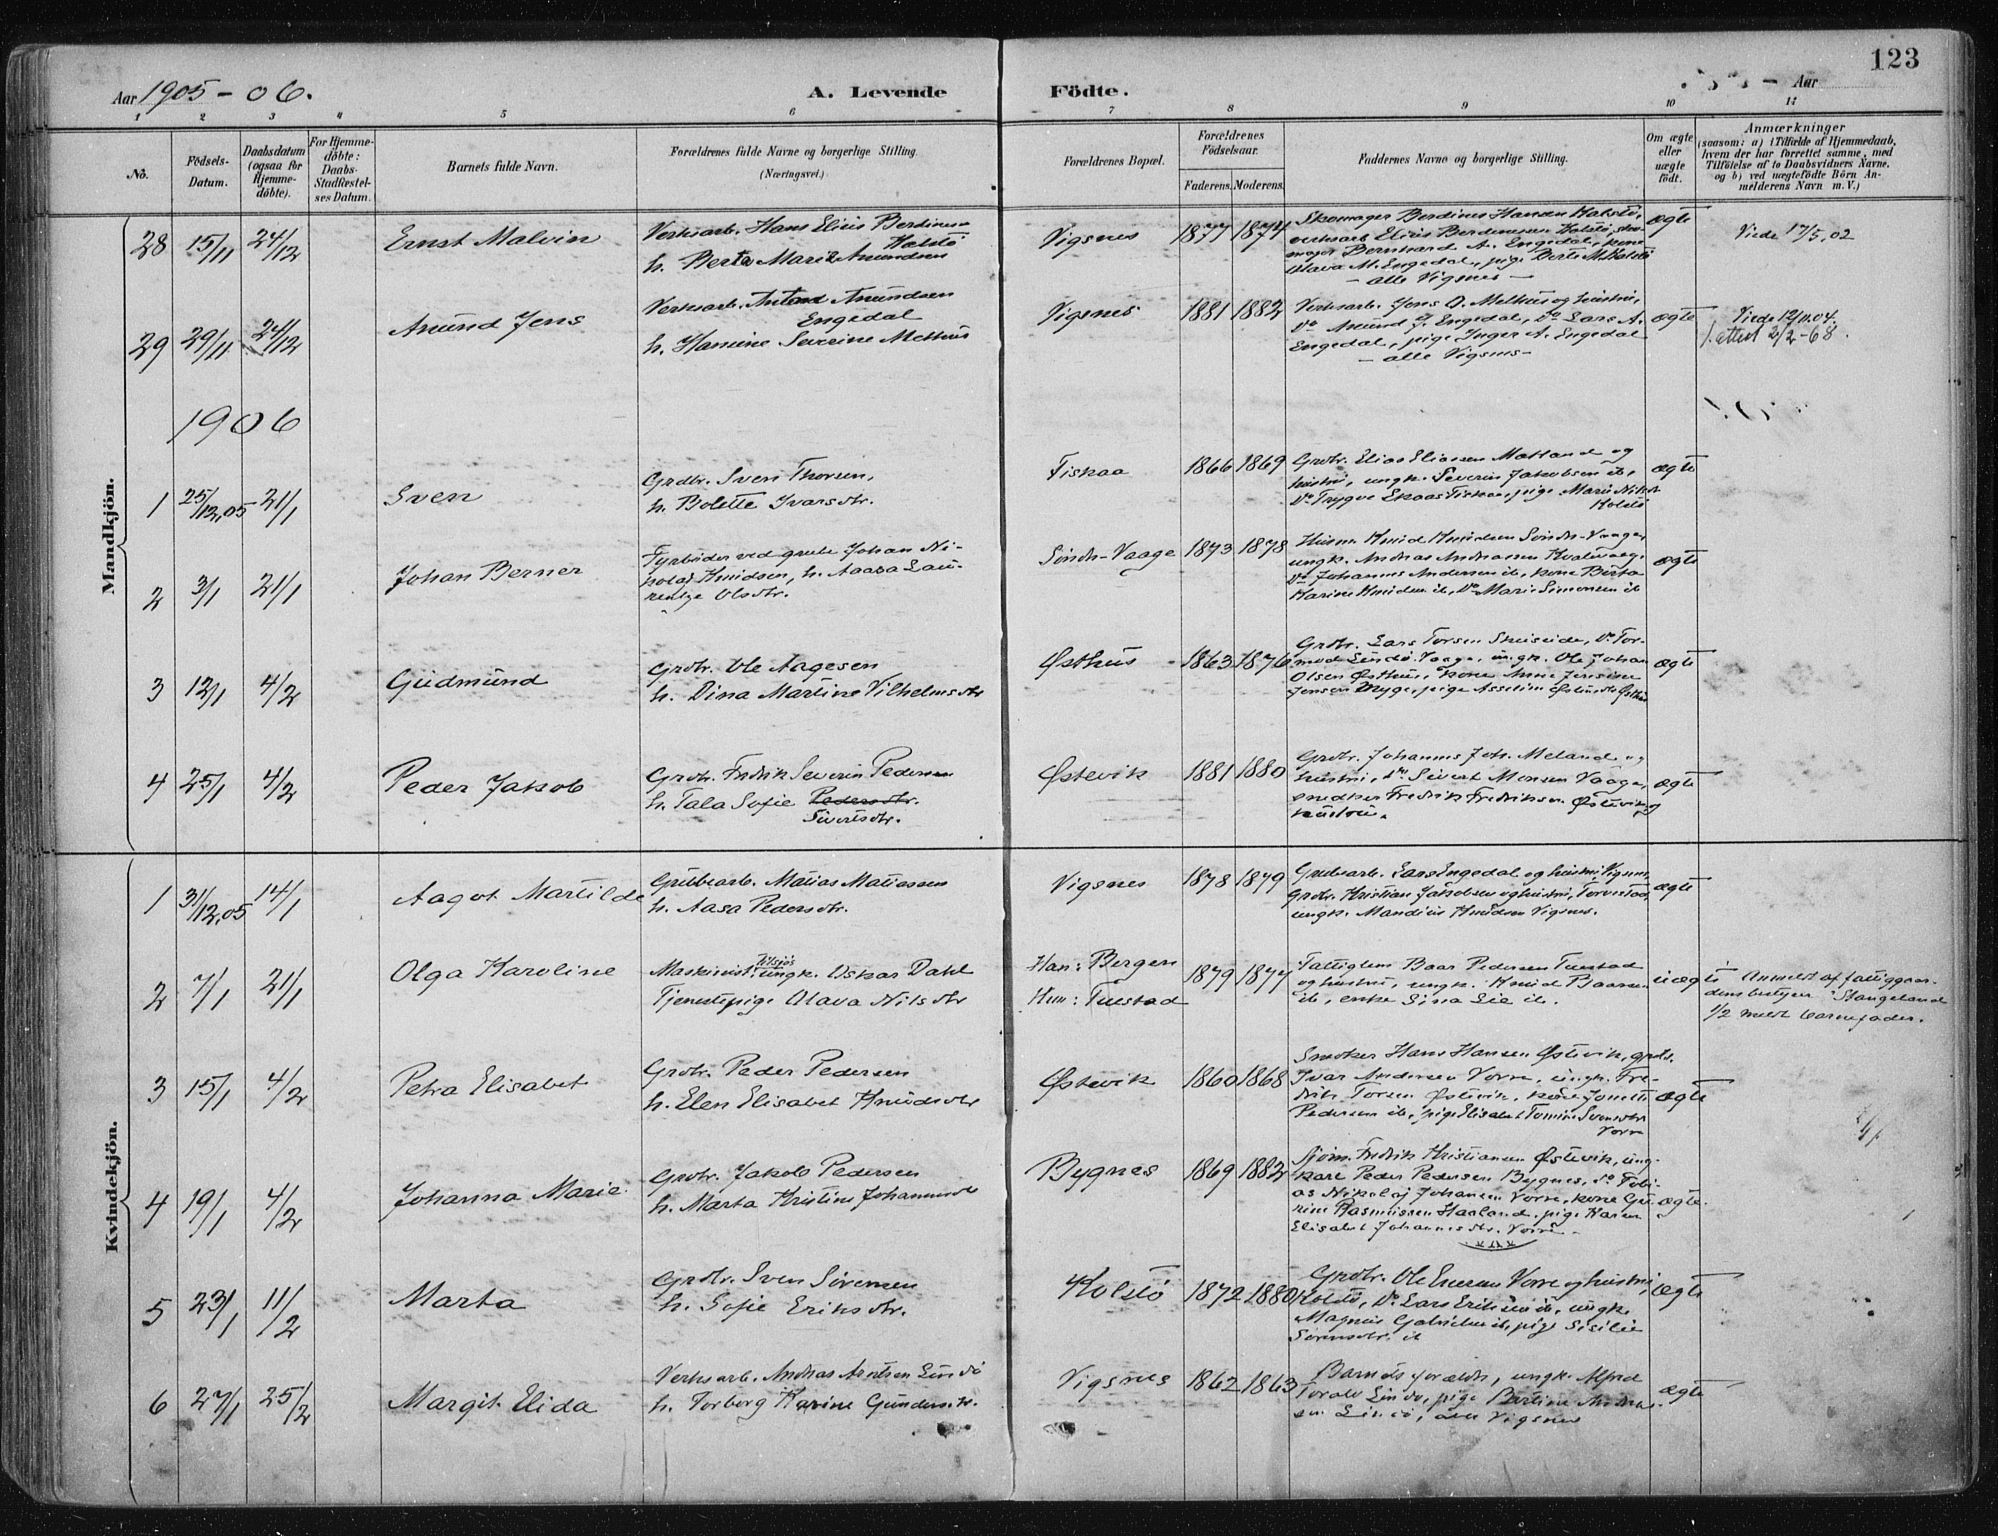 123
Aar 1905-06.
A. Levende Födte.
Aar
1 2 3 4 5 6 7 8 9 10 11
No.
Födsels-Datum.
Daabsdatum (ogsaa for Hjemmedöbte).
For Hjemmedöbte: Daabs-Stadfæstelses Datum.
Barnets fulde Navn.
Forældrenes fulde Navne og borgerlige Stilling.
(Næringsvei.)
Forældrenes Bopæl.
Forældrenes Födselsaar.
Faderens. Moderens.
Faddernes Navne og borgerlige Stilling.
Om ægte eller uægte födt.
Anmærkninger
(saasom: a) i Tilfælde af Hjemmedaab, hvem der har forrettet samme, med Tilföielse af to Daabsvidners Navne, og b) ved uægtefödte Börn Anmelderens Navn m. V.)
Mandkjön.
28 15/11 24/12 Ernst Malvin
Verksarb. Hans Elius Berdinsen Kolstö
h. Berta Marie Amundsen
Vigsnes 1877 1874
Skomager Berdines Hansen Kolstö,
verksarb. Elius Berdinesen Kolstö, sko-
mager Bernhard A. Engedal, kone
Olava M. Engedal, pige Berte M. Kolstö
- alle Vigsnes -
ægte
Viede 17/5.02
29 29/11 24/12 Amund Jens
Verksarb. Anton Amundsen
Engedal
h. Hanine Severine Melhus
Vigsnes 1881 1882
Verksarb. Jens O. Melhus og hustru,
do Amund J. Engedal, do Lars A.
Engedal, pige Inger A. Engedal
- alle Vigsnes -
ægte
Viede 12/11.04
1 attest 2/2-68.
1906
1 25/12.05 21/1 Sven
Grdbr. Sven Thorsen,
h. Bolette Ivarsdtr.
Fiskaa 1866 1869
Grdbr. Elias Eliassen Matland og
hustru, ungk. Severin Jakobsen ib.,
do Trygve Fiskaa, pige Marie
Kolstö
ægte
2 3/1 21/1 Johan Berner
Fyrböder ved grube Johan Ni-
kolai Knudsen, h. Aasa Lau-
rentse Olsdtr.
Söndr-Vaage 1873 1878
Husm. Knud Knudsen Söndr-Vaage,
ungk. Andreas Andreassen
do Johannes Andersen ib., kone Berta
Karine Knudsen ib, do Marie Simonsen ib
ægte
3 12/1 4/2 Gudmund
Grdbr. Ole Aagesen
h. Dina Martine Vilhelmsdtr
Østhus 1863 1876
Grdbr. Lars Torsen Skuseide, do Tor-
mod Vaage, ungk. Ole Johan
Olsen Østhus, kone Anne Jensine
Jensen Myge, pige
ægte
4 25/1 4/2 Peder Jakob
Grdbr. Fredrik Severin Pedersen
h. Tala Sofie Pedersdtr.
Sivertsdtr.
Østevik 1881 1880
Grdbr. Johannes Joh. Meland og
hustru, do Sivert Monsen Vaage,
snedker Fredrik Fredriksen Østevik og
hustru.
ægte
Kvindekjön.
1 31/12.05 14/1 Aagot Martilde
Grubearb. Matias Matiassen
h. Aasa Pedersdtr.
Vigsnes 1878 1879
Grubearb. Lars Engedal og hustru, Vigsnes
Grdbr. Kristian Jakobsen og hustru, Torvestad
ungk. Mandius Knudsen Vigsnes.
ægte
2 7/1 21/1 Olga Karoline
Maskinist, ungk. Oskar Dahl
Tjenestepige Olava Nilsdtr
Han: Bergen
Hun: Tuestad
1879 1877
Fattiglem Baar Pedersen Tuestad
og hustru, ungk. Knud Baarsen
ib, enke Sina Lie ib.
uægte
Anmeldt af fattiggaar-
dens bestyrer Stangeland
1/2 meldt barnefader.
3 15/1 4/2 Petra Elisabet
Grdbr. Peder Pedersen
h. Elen Elisabet Knudsdtr
Østevik 1860 1868
Snedker Hans Hansen Østevik, grdbr.
Ivar Andersen Vorre, ungk. Fre-
drik Torsen Østevik, kone
Pedersen ib., pige Elisabet Tomine Svensdtr
Vorre
ægte
4 19/1 4/2 Johanna Marie
Grdbr. Jakob Pedersen
h. Marta Kristine Johannesdtr
Bygnes 1869 1882
Sjöm. Fredrik Kristiansen Østevik, ung-
karl Peder Pedersen Bygnes, do Tobi-
as Nikolaj Johansen Vorre, kone Gu-
rine Rasmussen Haaland, pige Karen
Elisabet Johannesdtr. Vorre -
ægte
5 23/1 11/2 Marta
Grdbr. Sven Sörensen
h. Sofie Eriksdtr.
Kolstö 1872 1880
Grdbr. Ole Vorre og hustru,
Kolstö, do Lars ib, ungk.
Magnus Gabrielsen ib, pige Sisilie
Sörensdtr. ib
ægte
6 27/1 25/2 Margit Elida
Verksarb. Andreas Arntsen Lindö
h. Torborg Karine Gundersdtr.
Vigsnes 1862 1863
Barnets foreldre, ungk. Alfred
Toralv Lindö, pige Bertine Andreas-
sen Lindö, alle Vigsnes
ægte